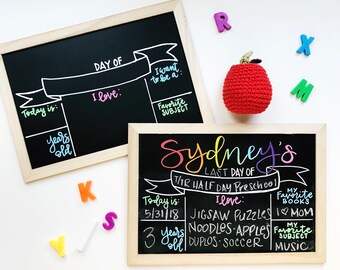 DAY OF
Today is:
I love:
I want to be a:
years old
Favorite SUBJECT
R
X
M
K
S
Y
Sydney's
LAST DAY OF
T/TR HALF DAY Preschool
Today is:
5/31/18
3 years old
I love:
JIGSAW PUZZLES
NOODLES • APPLES
DUPLOS • SOCCER
MY Favorite BOOKS
I ♡ MOM
MY Favorite SUBJECT
MUSIC